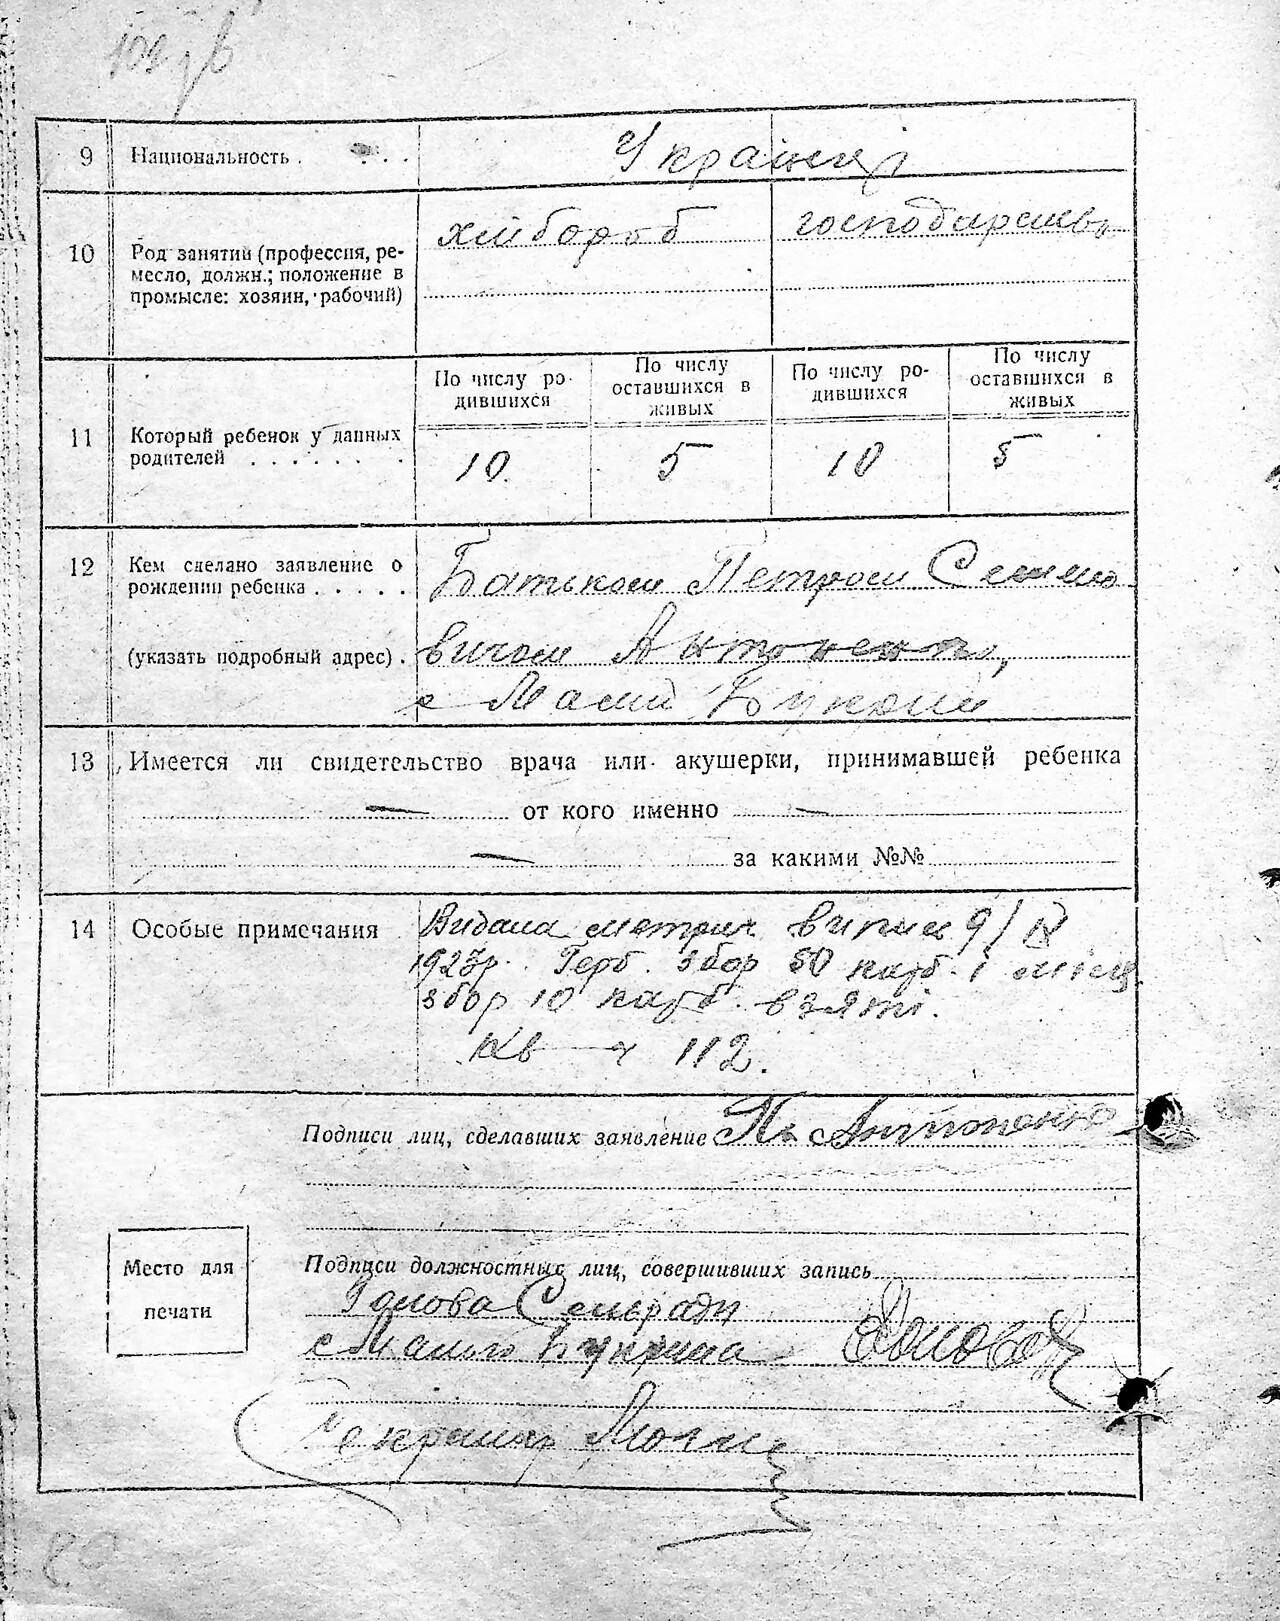 9 Национальность . . . . Українці
10 Род занятий (профессия, ре-
месло, должн.; положение в
промысле: хозяин, рабочий)
хлібороб господарство
11 Который ребенок у данных
родителей . . . . . . .
По числу ро-
дившихся
По числу
оставшихся в
живых
По числу ро-
дившихся
По числу
оставшихся в
живых
10. 5 10 5
12 Кем сделано заявление о
рождении ребенка . . . . .
(указать подробный адрес) .
Батьком Петром Семено
вичом Антоненко,
с Малий Букрин
13 Имеется ли свидетельство врача или акушерки, принимавшей ребенка
— от кого именно —
— за какими №№
14 Особые примечания
Видана метрич випис 9/IV
1923р. Герб. збор 50 карб. і місц.
збор 10 карб. взяті.
Кв 112.
Подписи лиц, сделавших заявление Антоненко
Место для
печати
Подписи должностных лиц, совершивших запись
Голова Сельради
с Малого Букрина
Секретар